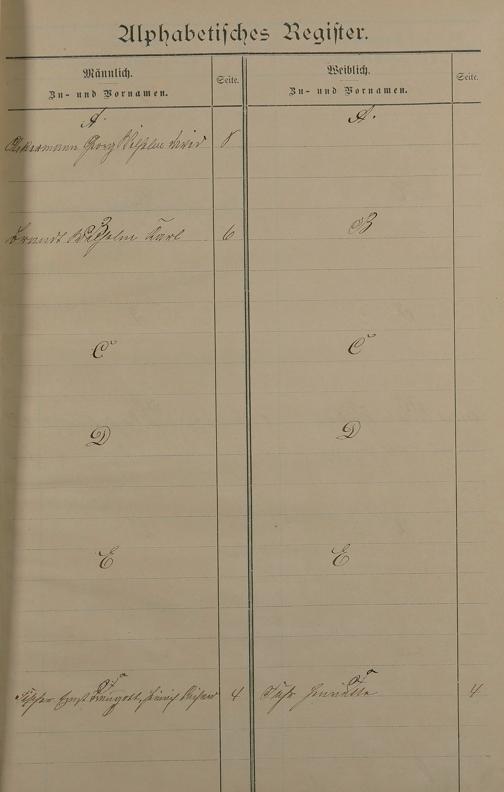 Alphabetisches Register.
Männlich.
Zu- und Vornamen.
Seite.
Weiblich.
Zu- und Vornamen.
Seite.
A.
A.
Ackermann Georg Wilhelm 8
B
B
Brandt Wilhelm Karl 6
C
C
D
D
E
E
F
F
Fischer Ernst Traugott, Heinrich 4
Henriette 4